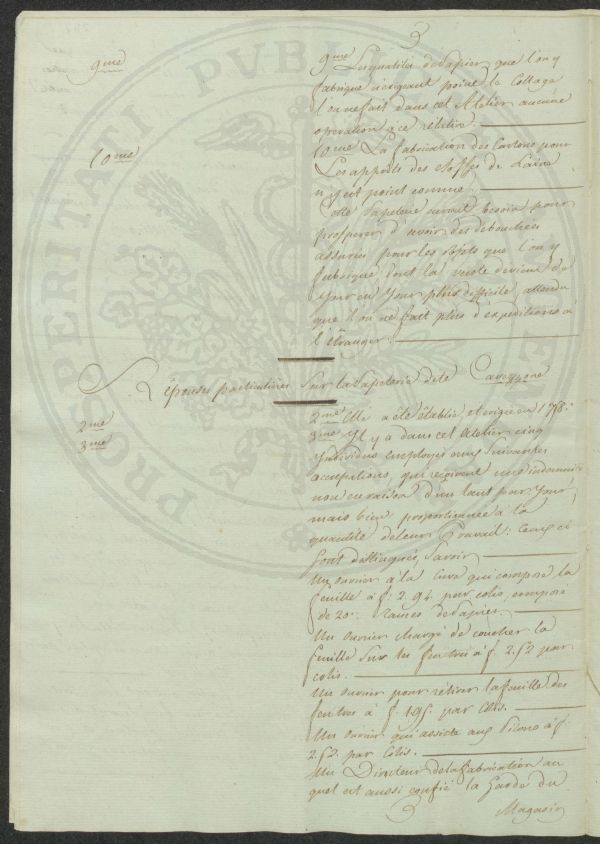 3
9me
9me Les qualités de Papier que l'on y
fabrique n'exigeant point le Collage
l'on ne fait dans cet Atelier aucune
operation a ce relative.
10me
10me La fabrication des Cartons pour
Les apprêts des etoffes de Laine
n'y est point connue.
Cette Papeterie auroit besoin pour
prosperer d'avoir des débouchées
assurés pour les objets que l'on y
fabrique dont la vente devient de
Jour en Jour plus difficile, attendu
que l'on ne fait plus d'expeditions à
l'étranger.
Réponses particulières Sur la Papeterie dite
2me
2me Elle a été établie et erigée en
3me
3me Il y a dans cet Atelier cinq
Individus employés aux suivantes
occupations, qui reçoivent une indemnité
non en raison d'un tant par Jour,
mais bien proportionnée à la
quantité de leur Travail: Ceux ci
sont distingués, Savoir
Un ouvrier à la Cuve qui compose la
feuille à f. 2.94. par colis, composé
de 20. Rames de Papier.
Un ouvrier chargé de coucher la
feuille sur les feutres à f. 2.52 par
colis.
Un ouvrier pour rétirer la feuille des
feutres à f. par Colis.
Un ouvrier qui assiste aux Pilons à f.
2.52. par Colis.
Un Directeur de la fabrication au
quel est aussi confié la Garde du
Magasin
PROSPERITATI PVBLICAE